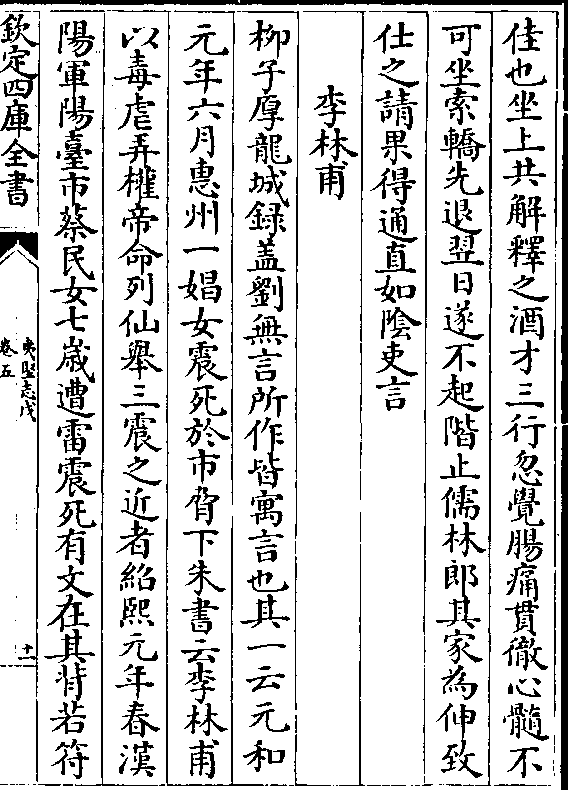 佳也坐上共解釋之酒才三行忽覺腸痛貫徹心髓不
可坐索轎先退翌日遂不起階止儒林郎其家為伸致
仕之請果得通直如隂吏言
李林甫
柳子厚龍城録盖劉無言所作皆寓言也其一云元和
元年六月惠州一娼女震死於市脅下朱書云李林甫
以毒虐弄權帝命列仙舉三震之近者紹熙元年春漢
陽軍陽臺市蔡民女七歳遭雷震死有文在其背若符
欽定四庫全書
夷堅志戊
卷五
十一